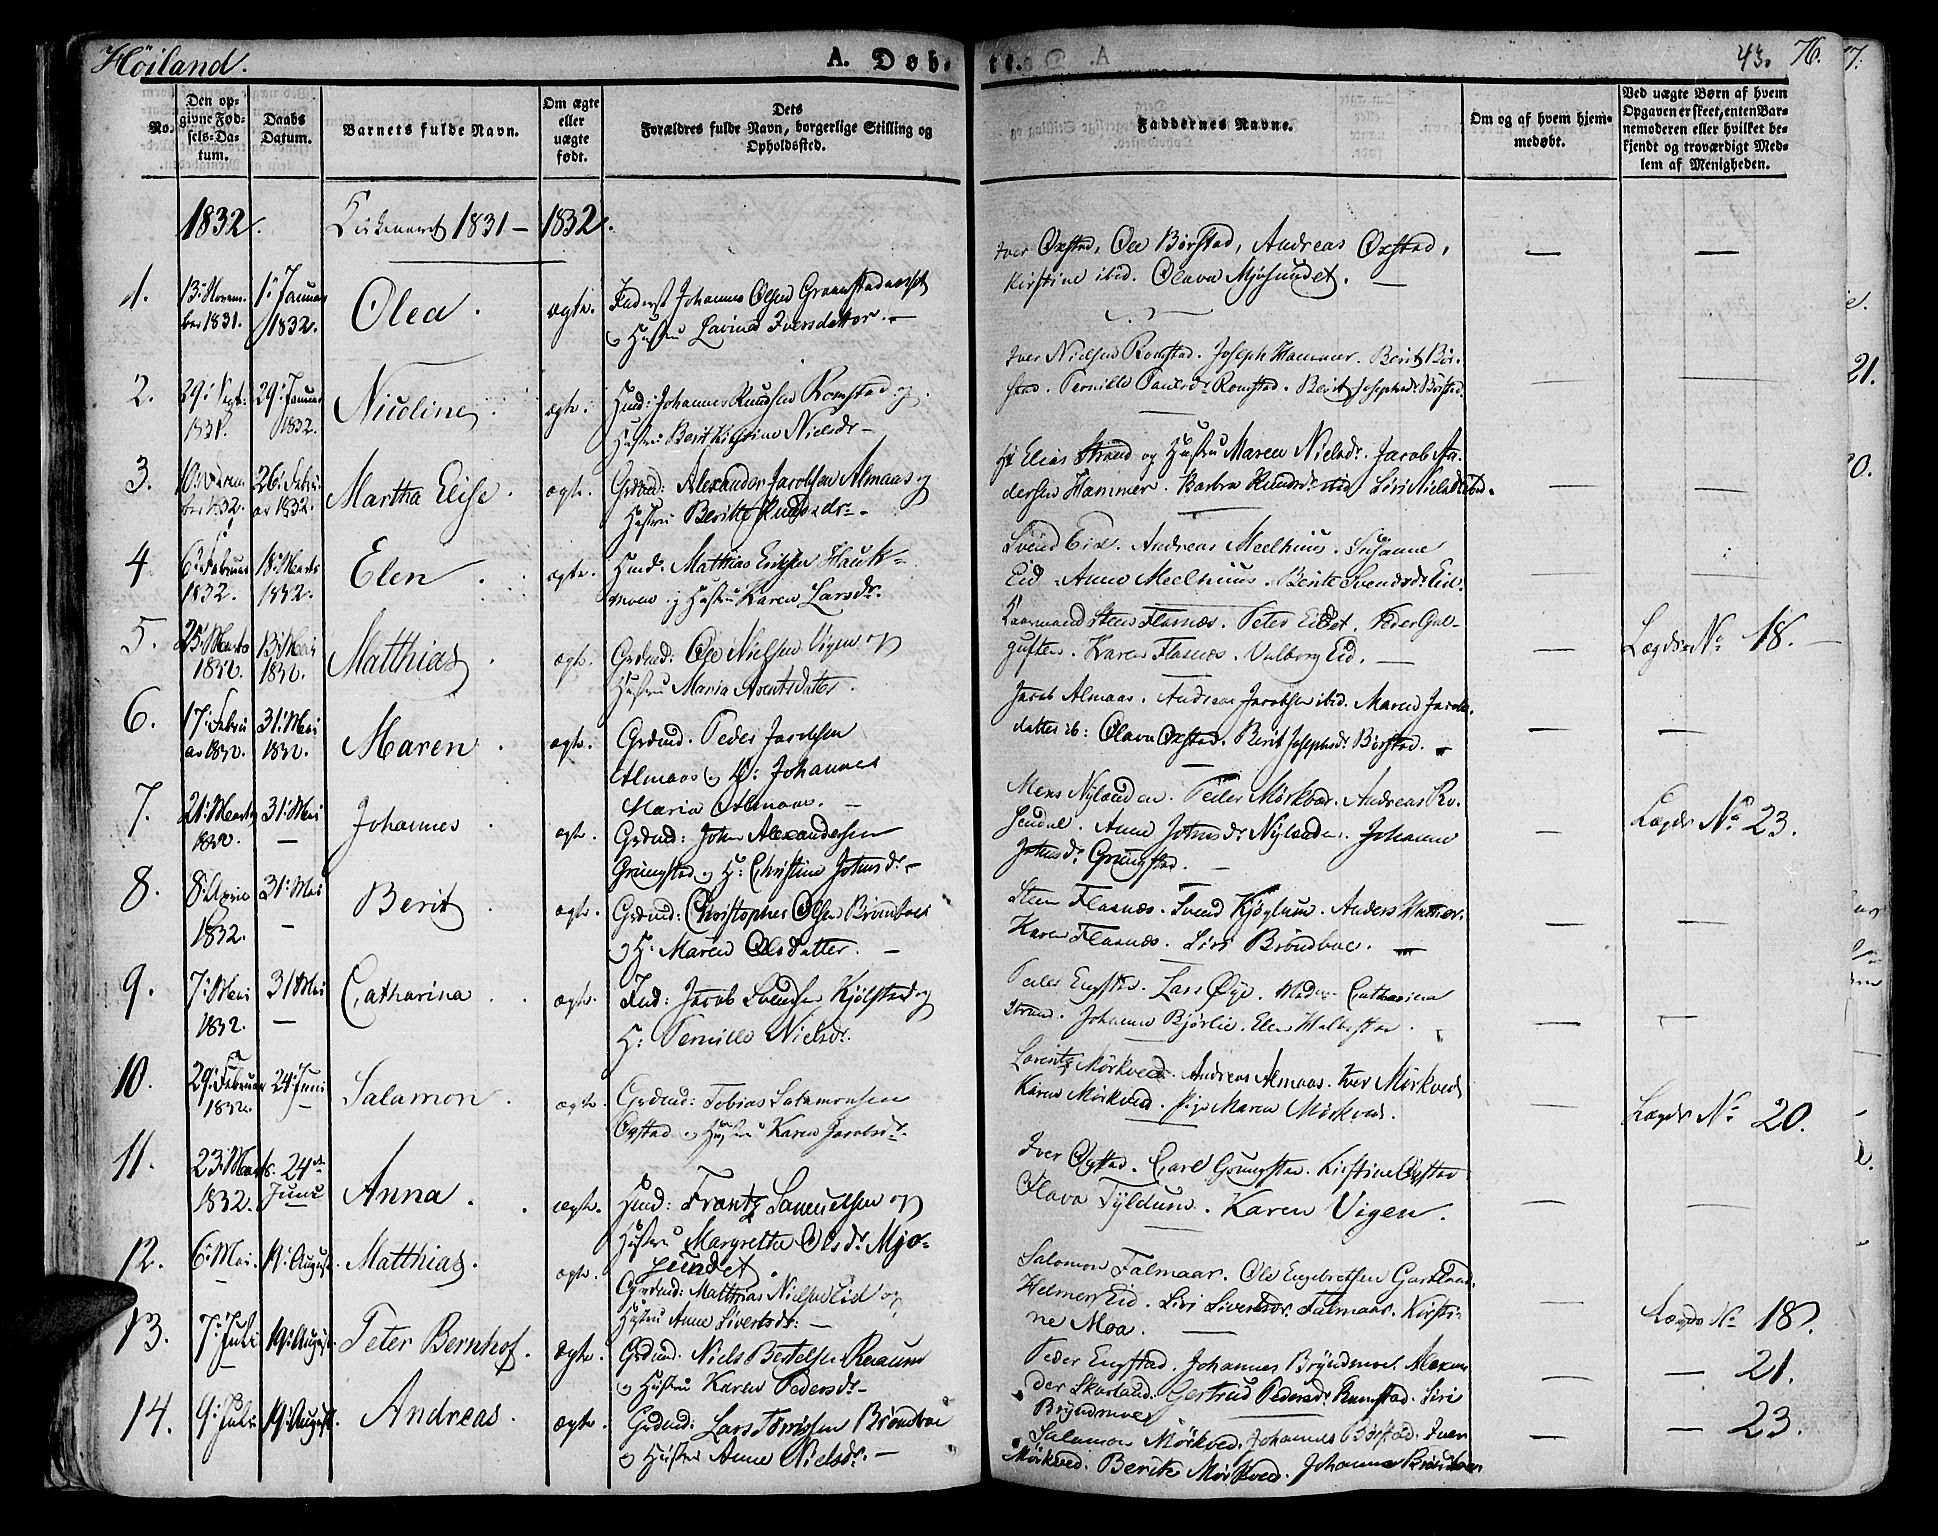 Høiland.
A. Døb-
te.
43. 76. 77.
No.
Den op-
givne Fød-
sels-Da-
tum.
Daabs
Datum.
Barnets fulde Navn.
Om ægte
eller
uægte
født.
Dets
Forældres fulde Navn, borgerlige Stilling og
Opholdssted.
Faddernes Navne.
Om og af hvem hjem-
medøbt.
Ved uægte Børn af hvem
Opgaven er skeet, enten Bar-
nemoderen eller hvilket be-
kjendt og troværdigt Med-
lem af Menigheden.
1832. Kirkeaaret 1831 - 1832.
1.
13: Novem-
ber 1831.
1: Januar
1832.
Olea.
ægte.
Johannes Olsen
og Hustru Lavina Iversdatter. -
Iver Oxstad, Ole Børstad, Andreas Oxstad,
Kirstine ibid. Olava Mjøsundet. -
2.
29: Sept:
1831.
29: Januar
1832.
Nicoline.
ægte.
Huusmd: Johannes Knudsen Romstad og
Hustru Berit Kirstine Nielsdr -
Iver Nielsen Romstad. Joseph Hammer. Berit Bør-
stad. Pernille Paulsdr Romstad. Berit Josephsdr Børstad.
3.
26: Febru-
ar 1832.
Martha Elise.
ægte.
Grdmd: Alexander Jacobsen Almaas og
Hustru Beritte Knudsdr. -
Hr Elias Strand og Hustru Maren Nielsdr. Jacob An-
dersen Hammer. Barbra Knudsdr ibid. Siri Nielsdr ibid.
4
6: Februar
1832.
18: Marts
1832.
Elen.
ægte.
Huusmd: Mathias Eriksen Hauk-
moen og Hustru Karen Larsdr.
Svend Eid. Andreas Meelhuus. Susanne
Eid. Anne Meelhuus. Berite Svendsdr Eid.
5.
25: Marts
1832.
13: Mai
1832.
Matthias.
ægte.
Grdmd: Ole Nielsen Vigen og
Hustru Maria Arentsdatter.
Steen Flasnæs. Peter Eidet. Peder Gal-
guften. Karen Flasnæs. Valborg Eid. -
Lægds No 18. -
6.
17: Febru
ar 1832.
31: Mai
1832.
Maren.
ægte.
Grdmd. Peder Jacobsen
Almaas og H: Johanna
Maria Almaas. -
Jacob Almaas. Andreas Jacobsen ibid. Maren Jacobs-
datter ib: Olava Oxstad. Berit Josephsdr Børstad. -
7.
21: Marts
1832.
31: Mai
-
Johannes.
ægte.
Grdmd: John Alexandersen
Grungstad og H: Christine Johnsdr. -
Mens Nylanden. Peder Mørkved. Andreas Ro-
sendal. Anne Johnsdr Nylanden. Johanna
Johnsdr Grungstad. -
Lægds No 23.
8.
8: April
1832.
31: Mai
-
Berit.
ægte.
Grdmd: Christopher Olsen Brøndboe
og H: Maren Olsdatter. -
Steen Flasnæs. Svend Kjøglum. Anders Hammer.
Karen Flasnæs. Siri Brøndboe. -
9.
7: Mai
1832.
31 Mai
-
Catharina.
ægte.
Ind: Jacob Svendsen Kjølstad og
H: Pernille Nielsdr.
Peder Engstad. Lars Øye. Catharina
Strand. Johanna Bjørlie. Elen Halbostad.
10.
29: Februar
1832.
24: Juni
-
Salamon.
ægte.
Grdmd: Tobias Salamonsen
Oxstad og Hustru Karen Jacobsdr.
Lorents Mørkved. Andreas Almaas. Iver Mørkved
Karen Mørkved. Pige Maren Mørkved.
Lægds No 20.
11.
23: Marts.
1832.
24de
Juni
Anna.
ægte.
Huusmd: Frantz Samuelsen og
Hustru Margrethe Olsdr Mjø-
sundet.
Iver Oxstad. Carl Grungstad. Kirstine Oxstad
Olava Tyldum. Karen Vigen.
12.
6: Mai.
19: August.
Matthias.
ægte.
Grdmd: Matthias Nielsen Eid og
Hustru Anne Sivertsdr: -
Salomon Falmaar. Ole Engebretsen Gartland.
Helmer Eid. Siri Sivertsdr. Falmaar. Kirsti-
ne Moa. -
Lægds No 18.
13.
7: Juli
19: August
Peter Bernhof.
ægte.
Grdmd. Niels Bertelsen Renaum
og Hustru Karen Pedersdr -
Peder Engstad. Johannes Brøndmoe. Alexan
der Skarland. Gertrud Pedersdr Romstad. Siri
Brøndmoe
- 21.
14.
9: Juli
19: August.
Andreas.
ægte.
Grdmd: Lars Tørrissen Brøndboe
og Hustru Anne Nielsdr. -
Salamon Mørkved. Johannes Børstad. Iver
Mørkved. Berite Mørkved. Johanna Brøndboe.
- 23.